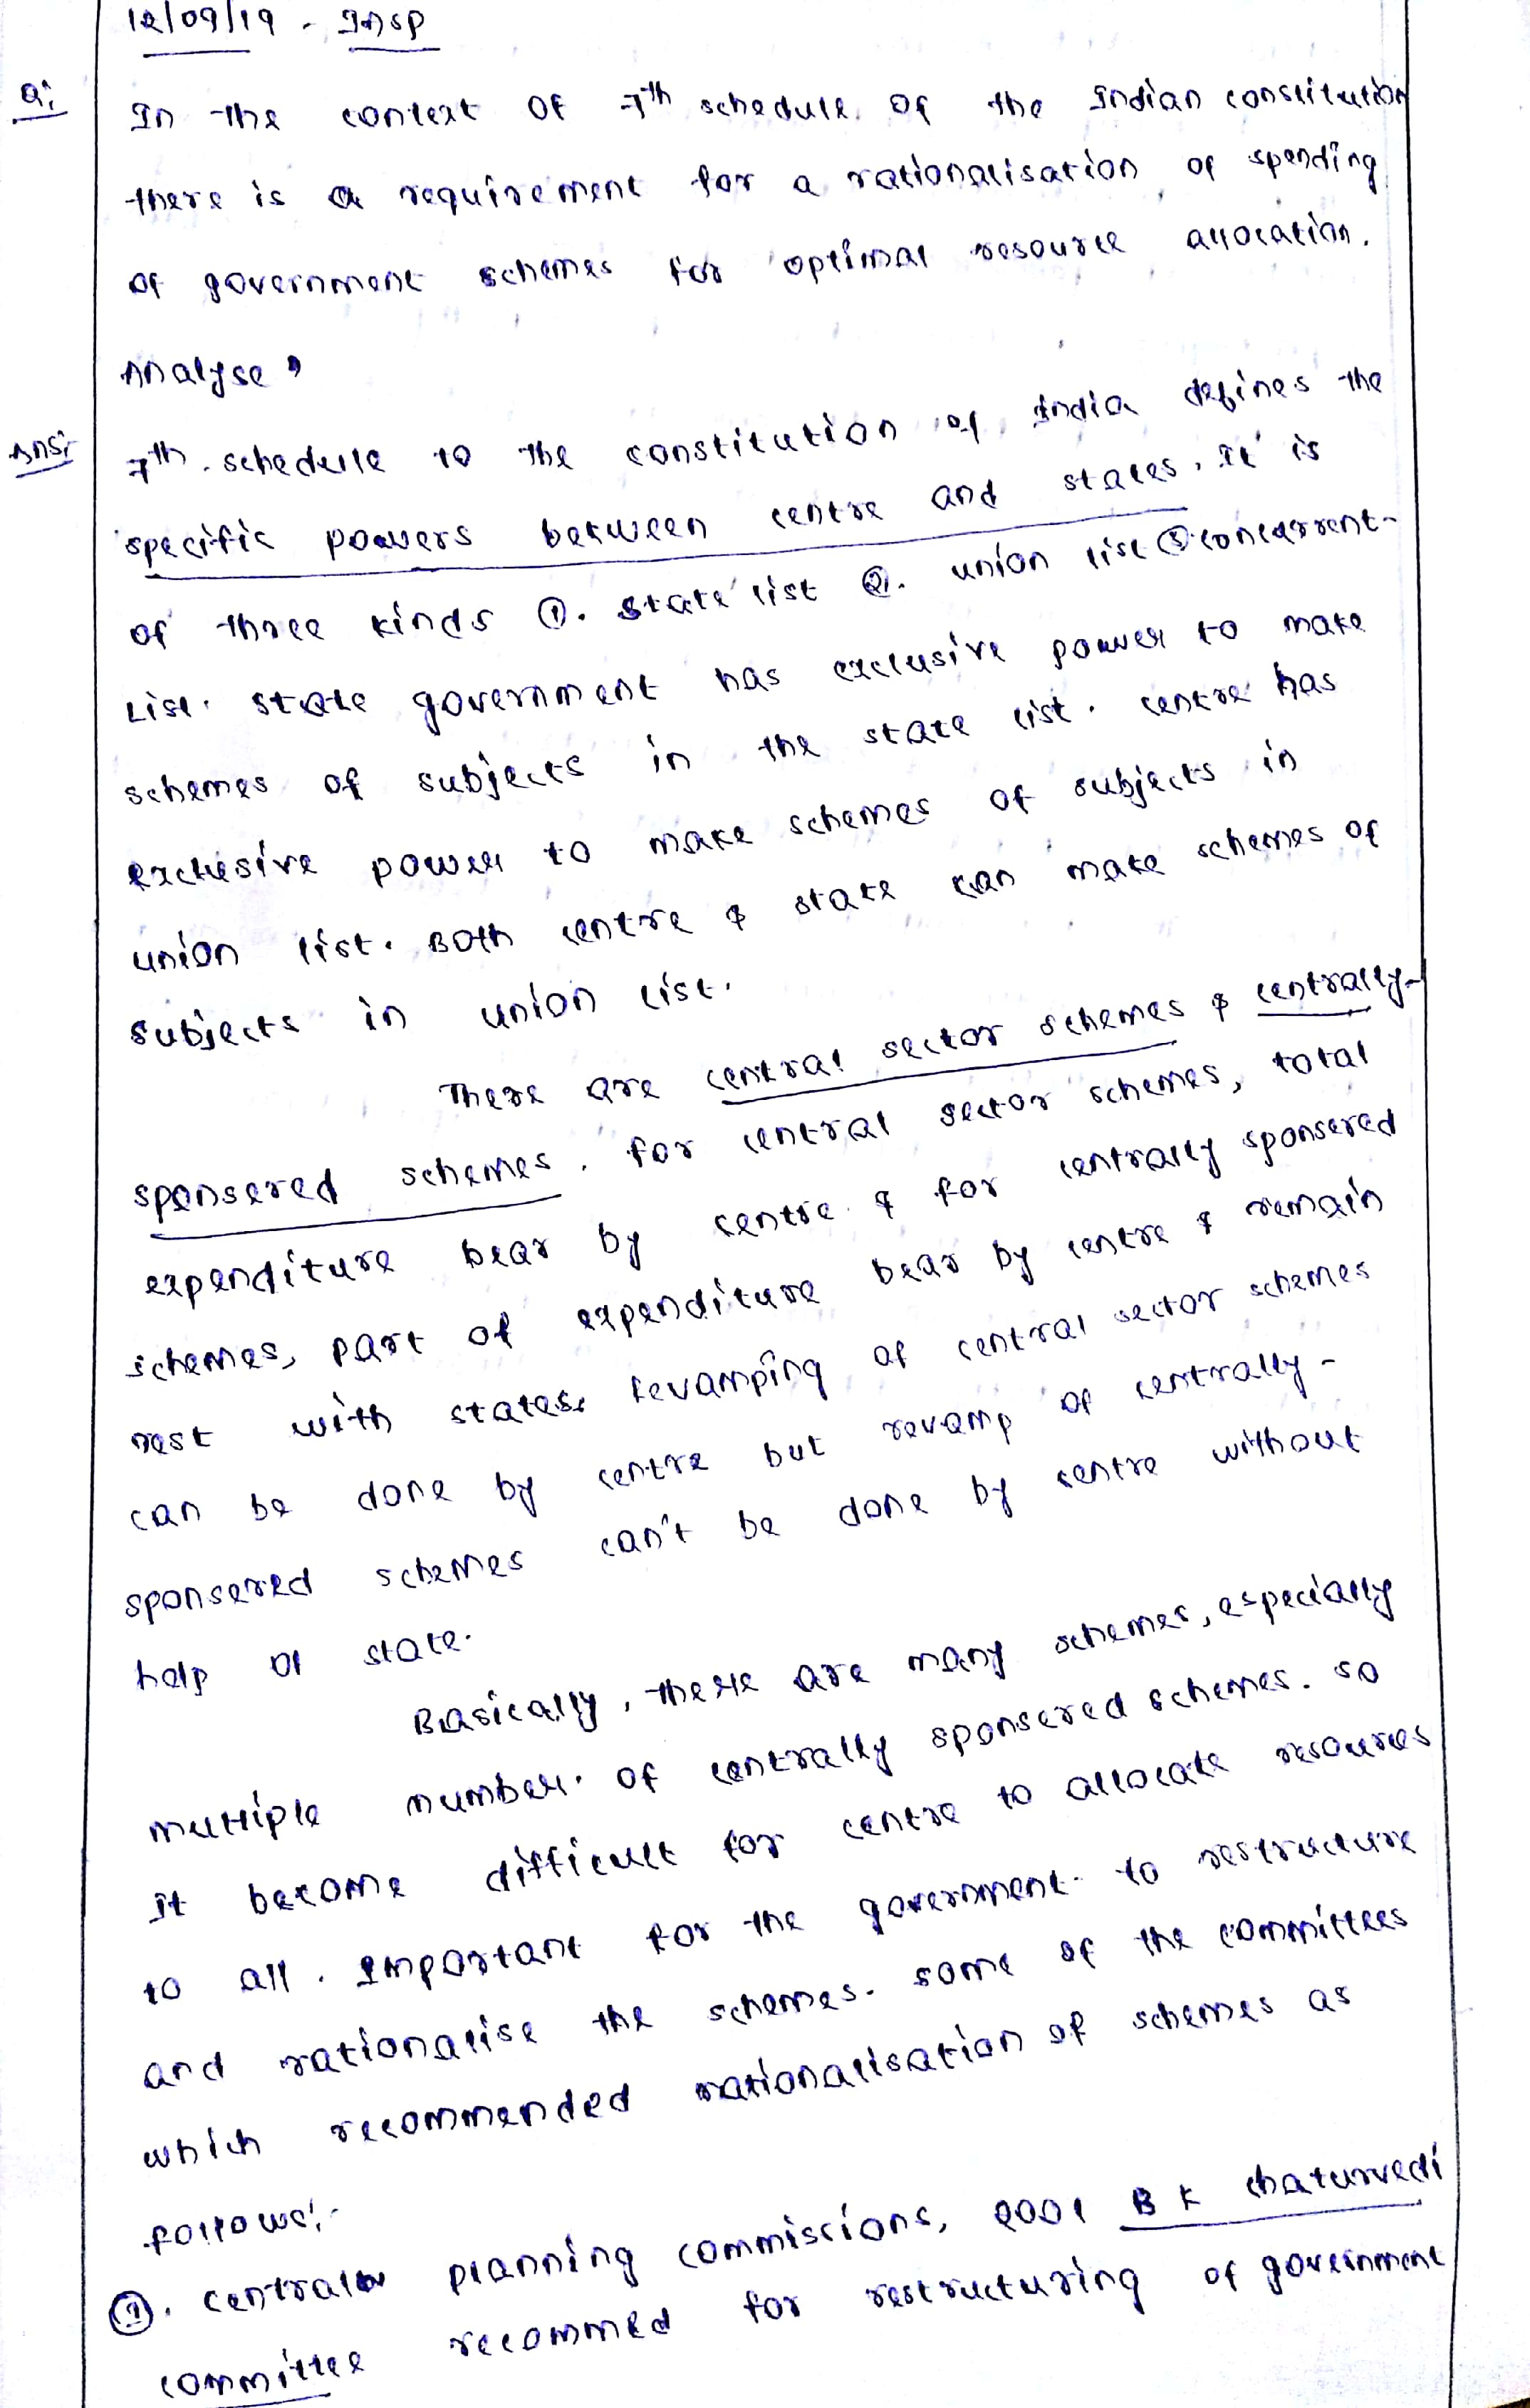 12/09/19 - INSP
Q:
In the context of 7th schedule of the Indian constitution
there is a requirement for a rationalisation of spending
of government schemes for optimal resource allocation.
Analyse
Ans:
7th schedule to the constitution of India defines the
specific powers between centre and states. It is
of three kinds ①. State list ②. union list ③ concurrent-
List. State government has exclusive power to make
schemes of subjects in the state list. centre has
exclusive power to make schemes of subjects in
union list. Both centre & state can make schemes of
subjects in union list.
There are central sector schemes & centrally-
sponsered schemes. for central sector schemes, total
expenditure bear by centre & for centrally sponsered
schemes, part of expenditure bear by centre & remain
rest with states. Revamping of central sector schemes
can be done by centre but revamp of centrally-
sponsered schemes can't be done by centre without
help of state.
Basically, there are many schemes, especially
multiple number of centrally sponsered schemes. so
It become difficult for centre to allocate resources
to all. Important for the government to restructure
and rationalise the schemes. some of the committees
which recommended rationalisation of schemes as
follows:-
①. Central planning commissions, 2001 B K chaturvedi
committee recommed for restructuring of government